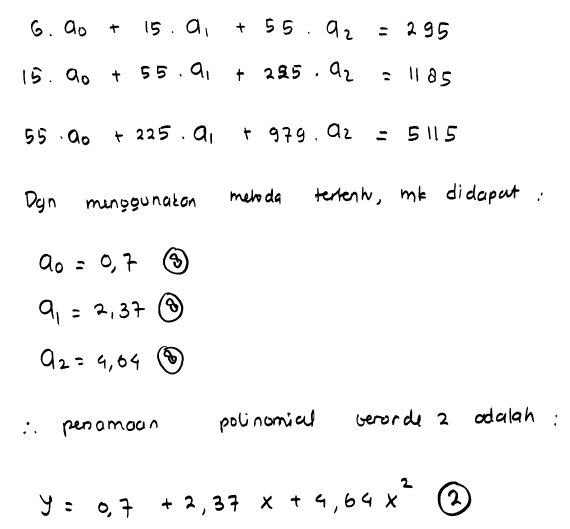 6. a₀ + 15. a₁ + 55. a₂ = 295
15. a₀ + 55. a₁ + 225. a₂ = 1185
55. a₀ + 225. a₁ + 979. a₂ = 5115
Dgn menggunakan metoda tertentu, mk didapat :
a₀ = 0,7 ⑧
a₁ = 2,37 ⑧
a₂ = 4,64 ⑧
∴ persamaan polinomial berorde 2 adalah :
y = 0,7 + 2,37 x + 4,64 x² ②